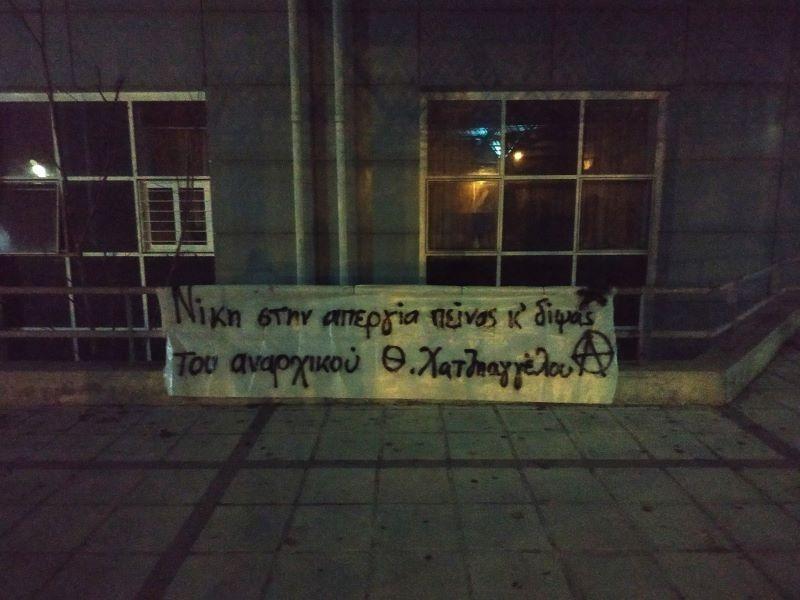 Νίκη στην απεργία πείνας κ' δίψας
του αναρχικού Θ. Χατζηαγγέλου Ⓐ